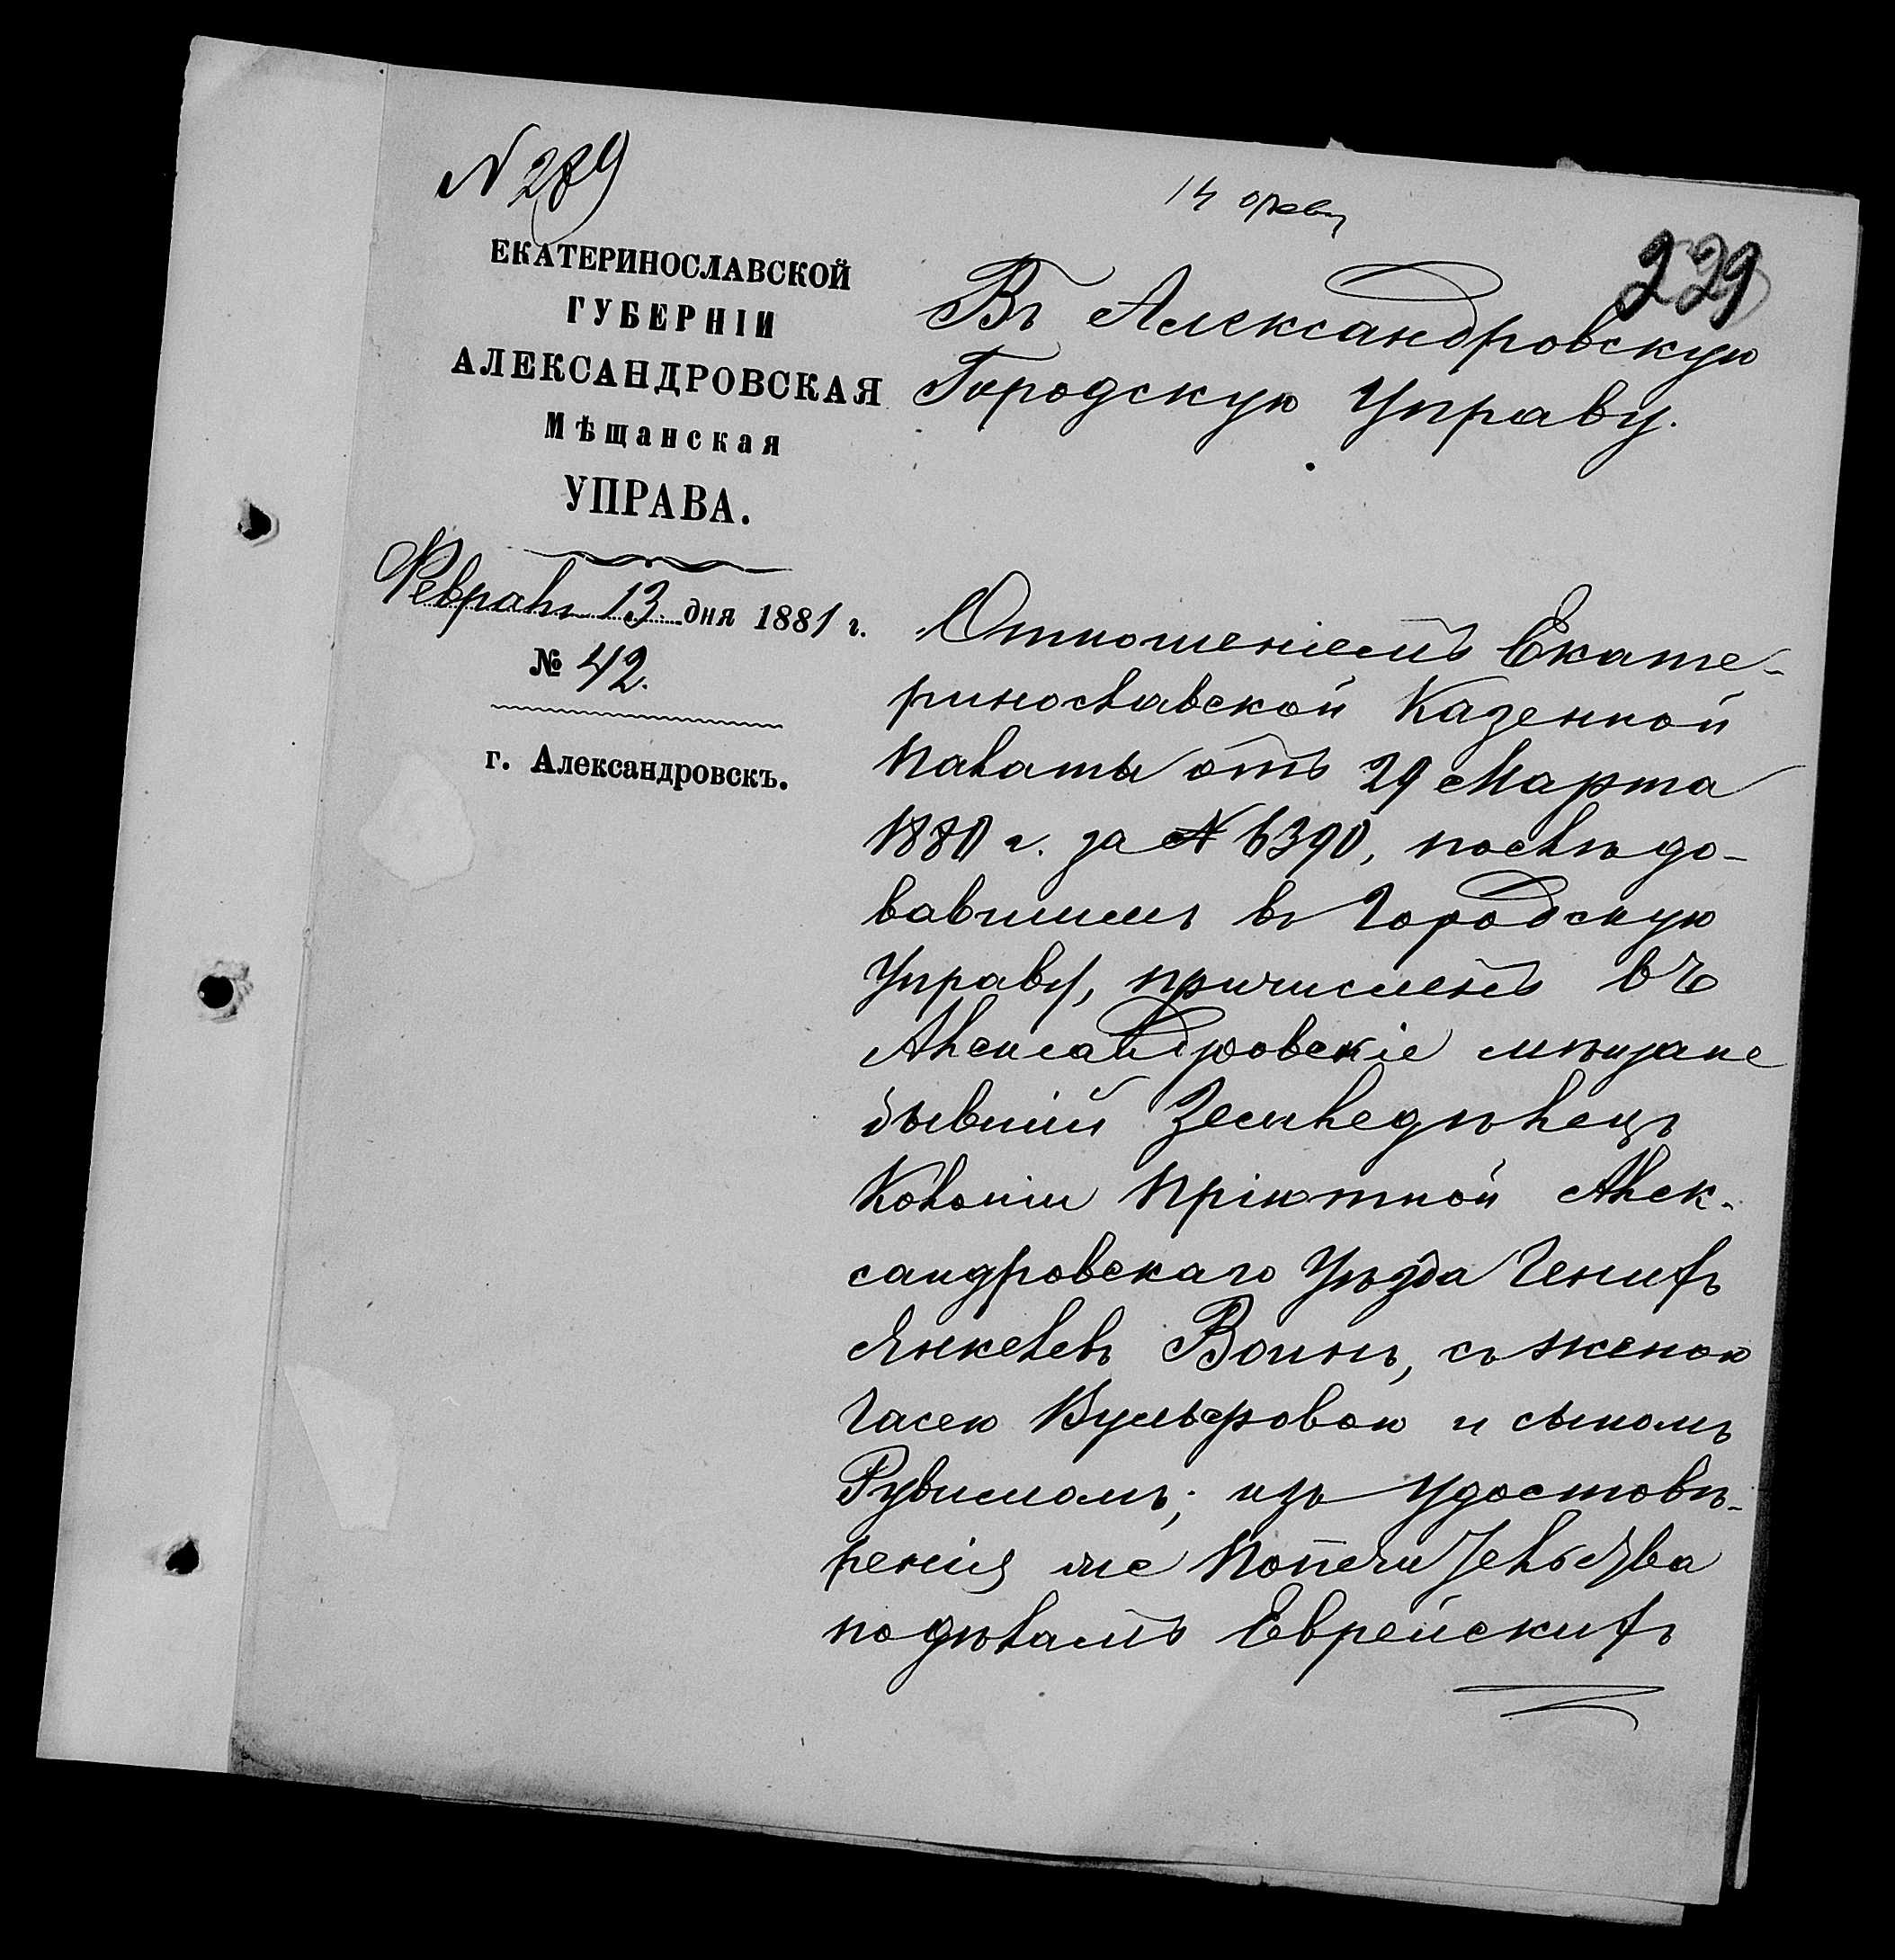 № 289
14 февр
229
ЕКАТЕРИНОСЛАВСКОЙ
ГУБЕРНІИ
АЛЕКСАНДРОВСКАЯ
Мѣщанская
УПРАВА.
Февраля 13 дня 1881 г.
№ 42.
г. Александровскъ.
Въ Александровскую
Городскую Управу.
Отношеніемъ Екате-
ринославской Казенной
Палаты отъ 29 Марта
1880 г. за № 6390, послѣдо-
вавшимъ въ Городскую
Управу, причисленъ въ
Александровскіе мѣщане
бывшій Земледѣлецъ
Колоніи Пріютной Алек-
сандровскаго Уѣзда
Янкелевъ Воинъ, съ женою
Хасею Вульфовою и сыномъ
Рувимомъ; изъ удостовѣ-
ренія же Попечительства
по дѣламъ Еврейскихъ